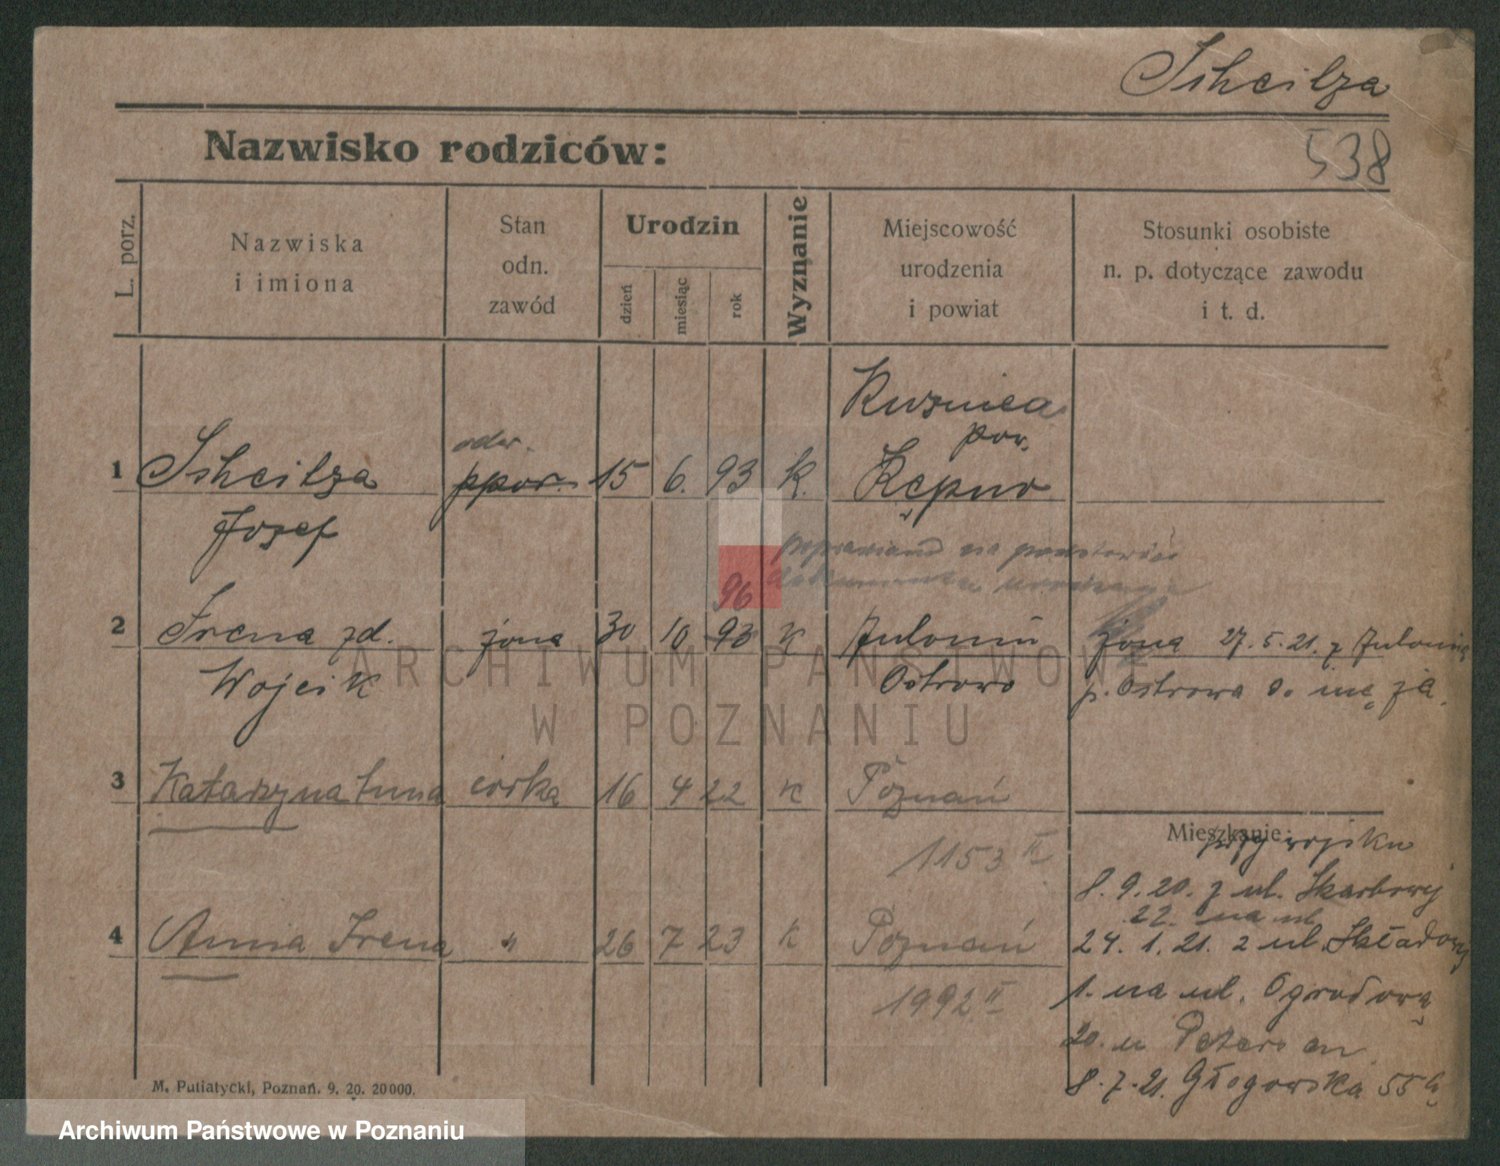 Ishcilza
Nazwisko rodziców:
538
L. porz.
Nazwiska
i imiona
Stan
odn.
zawód
Urodzin
dzień
miesiąc
rok
Wyznanie
Miejscowość
urodzenia
i powiat
Stosunki osobiste
n. p. dotyczące zawodu
i t. d.
Kuznica
pow.
1 Ishcilza ppor. 15 6. 93 k. Kępno
Józef
poprawiono na podstawie
96
2 Irena zd. żona 30 10 93 k Antonin żona 27.5.21. z Antonina
Wojcik Ostrowo p. Ostrowa do męża.
ARCHIWUM PAŃSTWOWE
W POZNANIU
3 Katarzyna Anna córka 16 4 22 k Poznań
Mieszkanie:
przy wojsku
1153 II
8.9.20. z ul. Skarbowej
22. na ul.
4 Anna Irena " 26 7 23 k Poznań 24.1.21. z ul. Składowej
1. na ul. Ogrodową
1992 II
20. u Petersen
8.7.21. Głogowska 55
M. Putiatycki, Poznań. 9. 20. 20000.
Archiwum Państwowe w Poznaniu